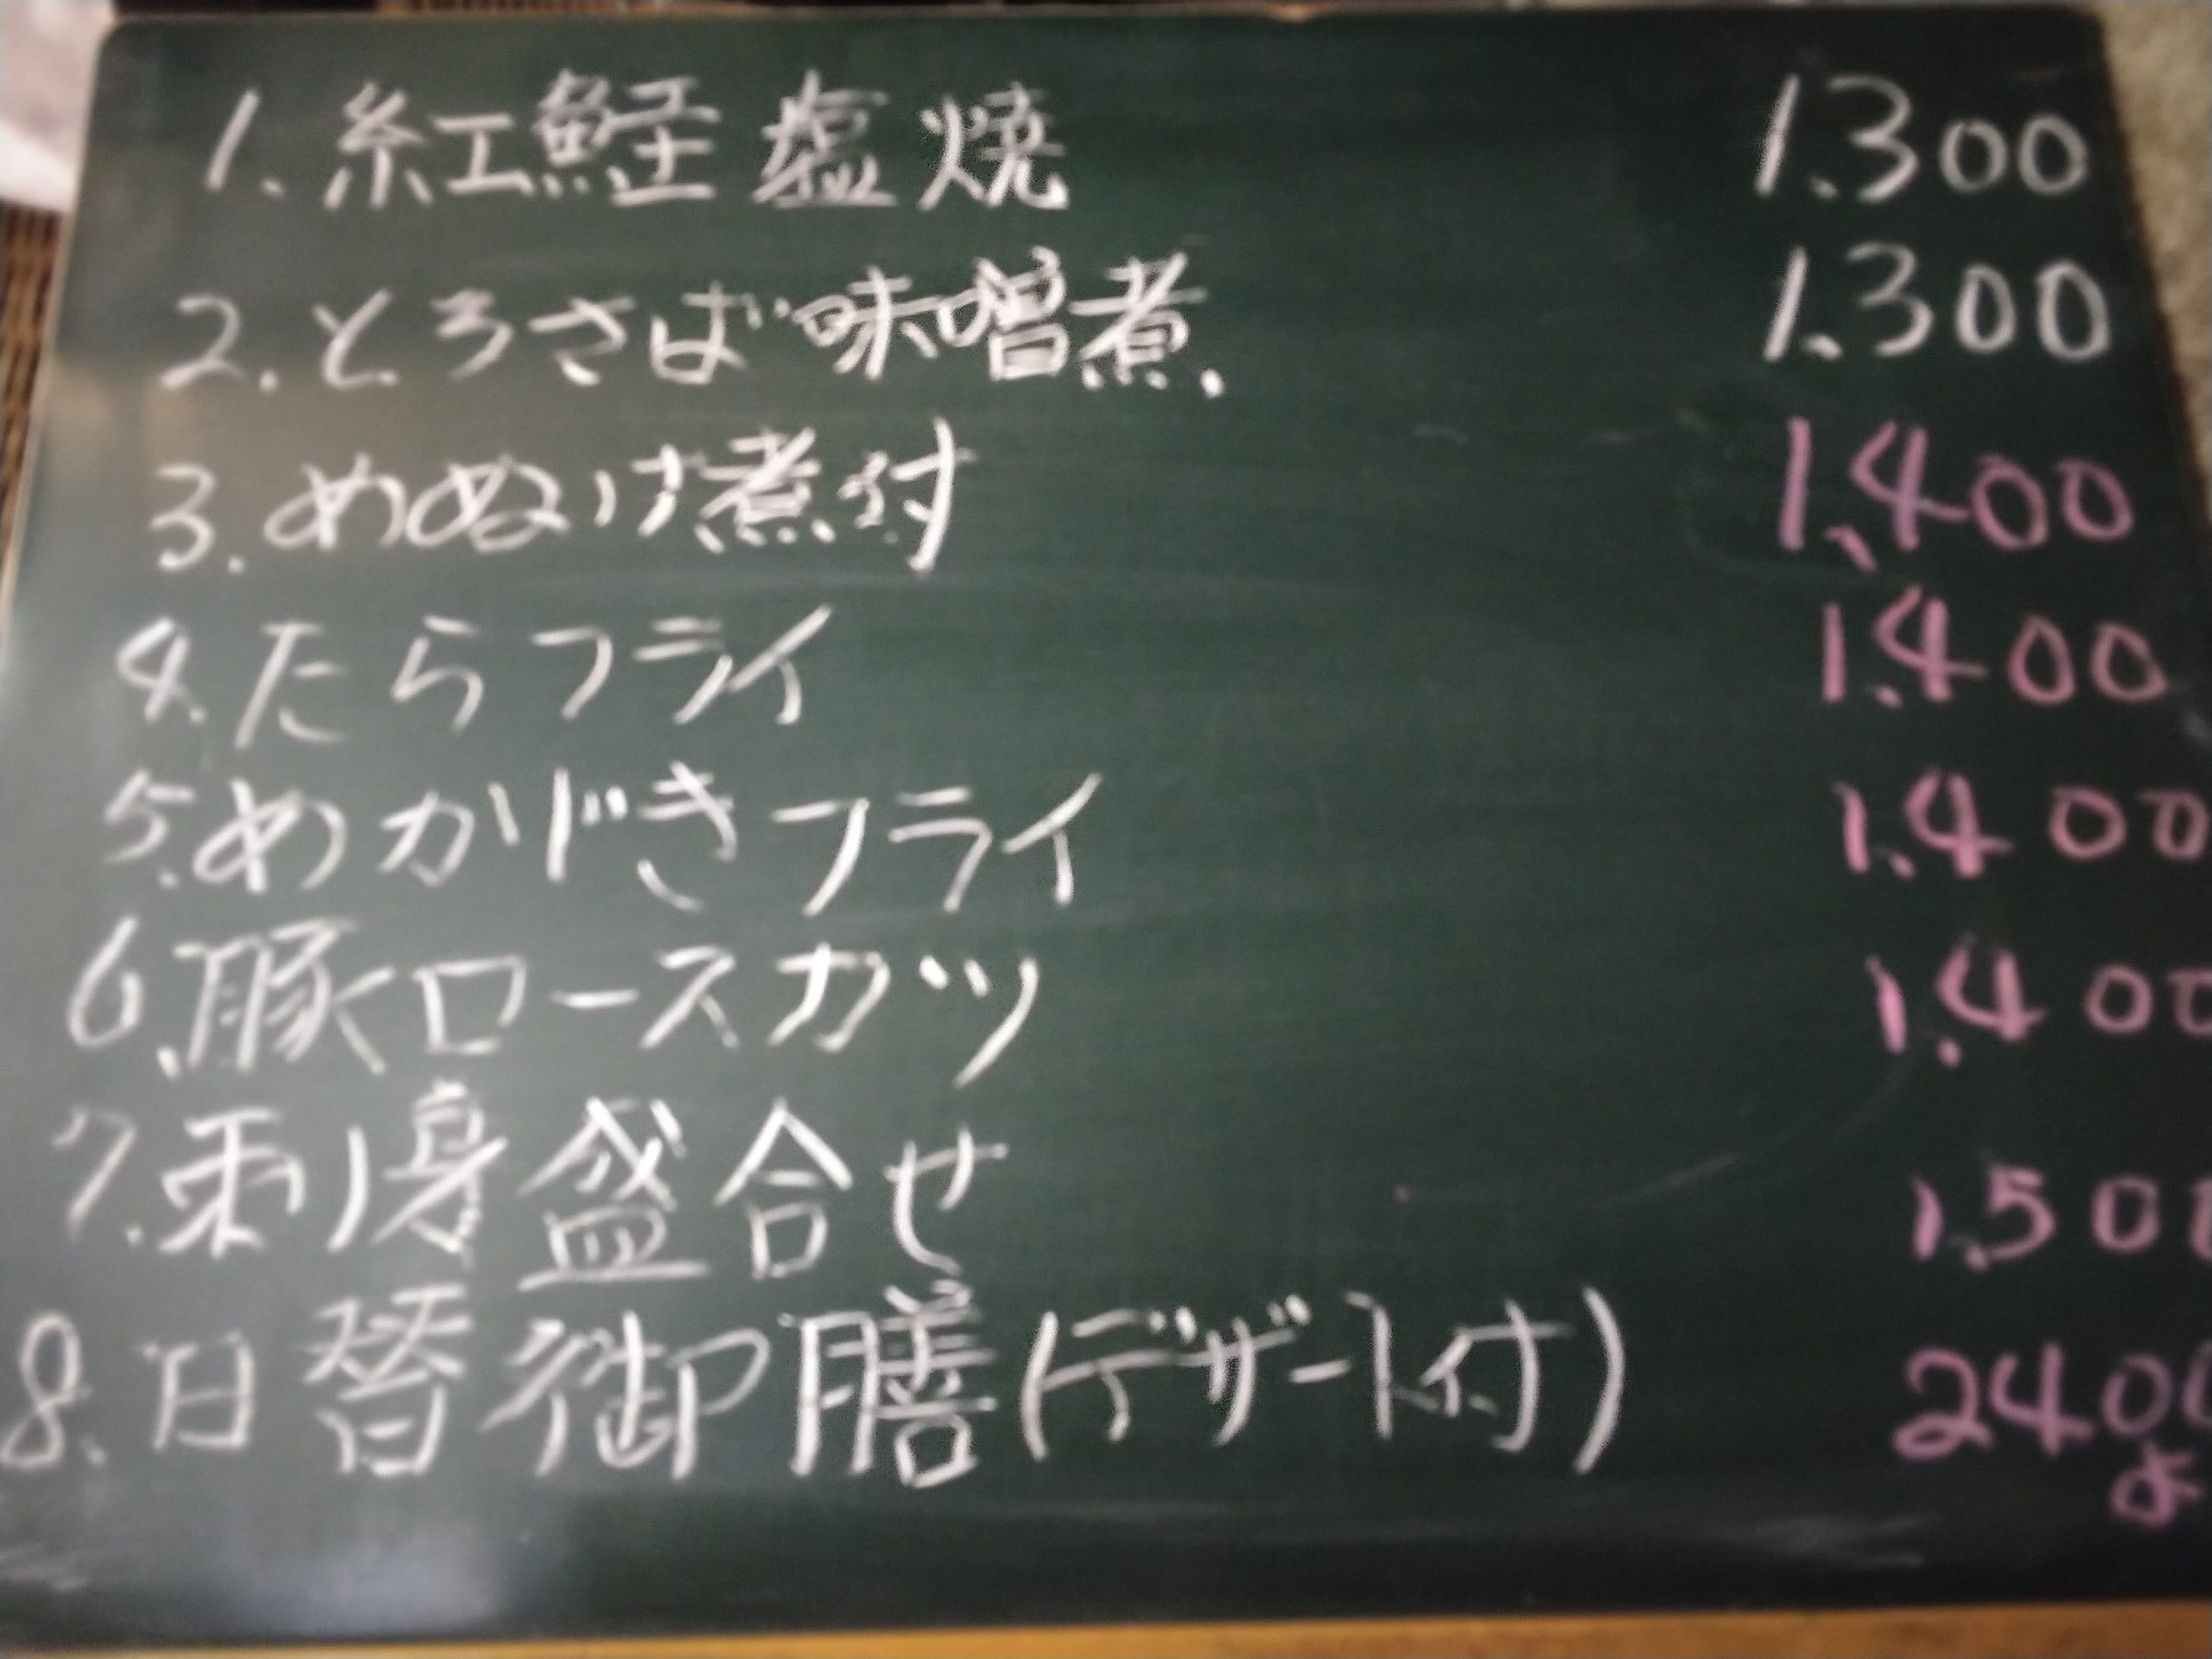 1. 紅鮭塩焼 1.300
2. とろさば味噌煮 1.300
3. めぬけ煮付 1.400
4. たらフライ 1.400
5. めかじきフライ 1.400
6. 豚ロースカツ 1.400
7. 刺身盛合せ 1.500
8. 日替御膳(デザート付) 2400
より